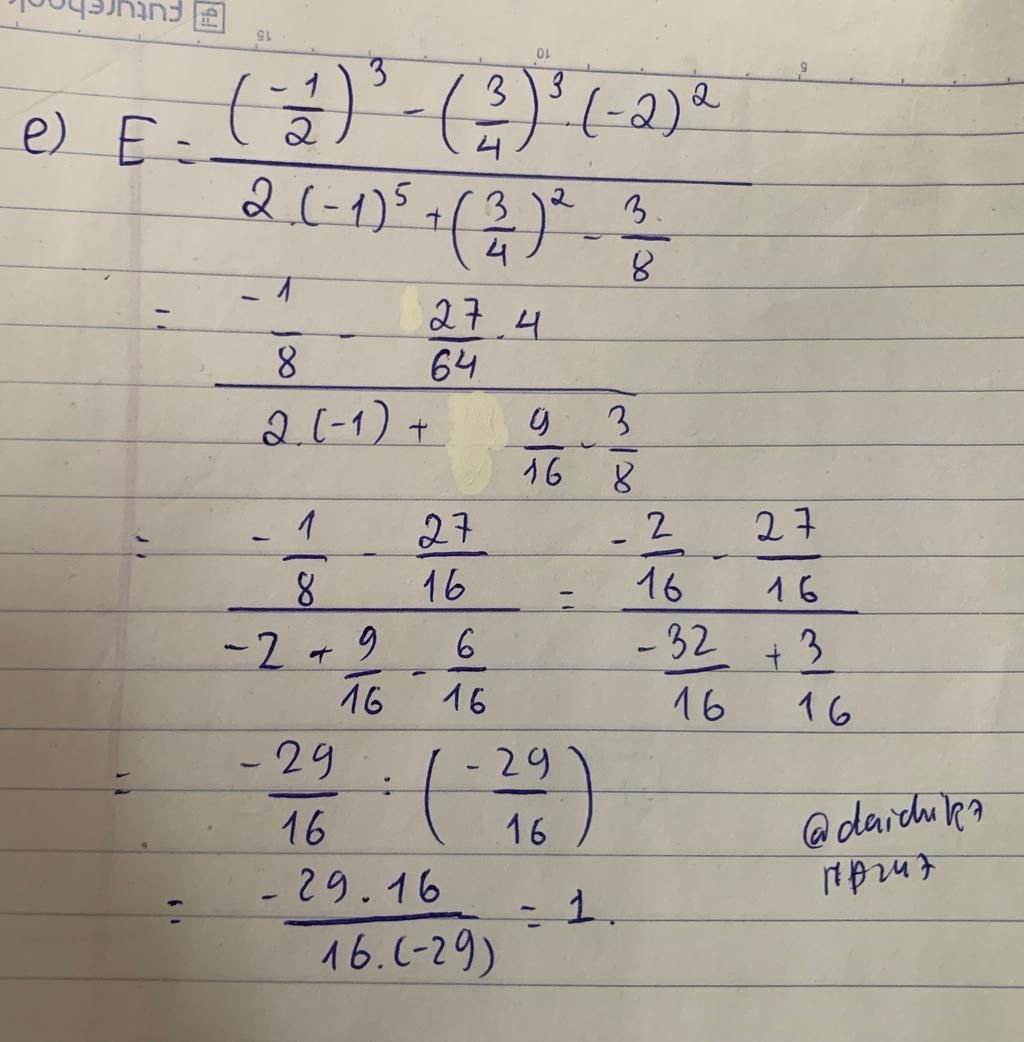 Futurebook
15 10 5
e) E = ((-1/2)^3 - (3/4)^3 . (-2)^2) / (2.(-1)^5 + (3/4)^2 - 3/8)
= (-1/8 - 27/64 . 4) / (2.(-1) + 9/16 - 3/8)
= (-1/8 - 27/16) / (-2 + 9/16 - 6/16) = (-2/16 - 27/16) / (-32/16 + 3/16)
= -29/16 : (-29/16)
= (-29.16) / (16.(-29)) = 1.